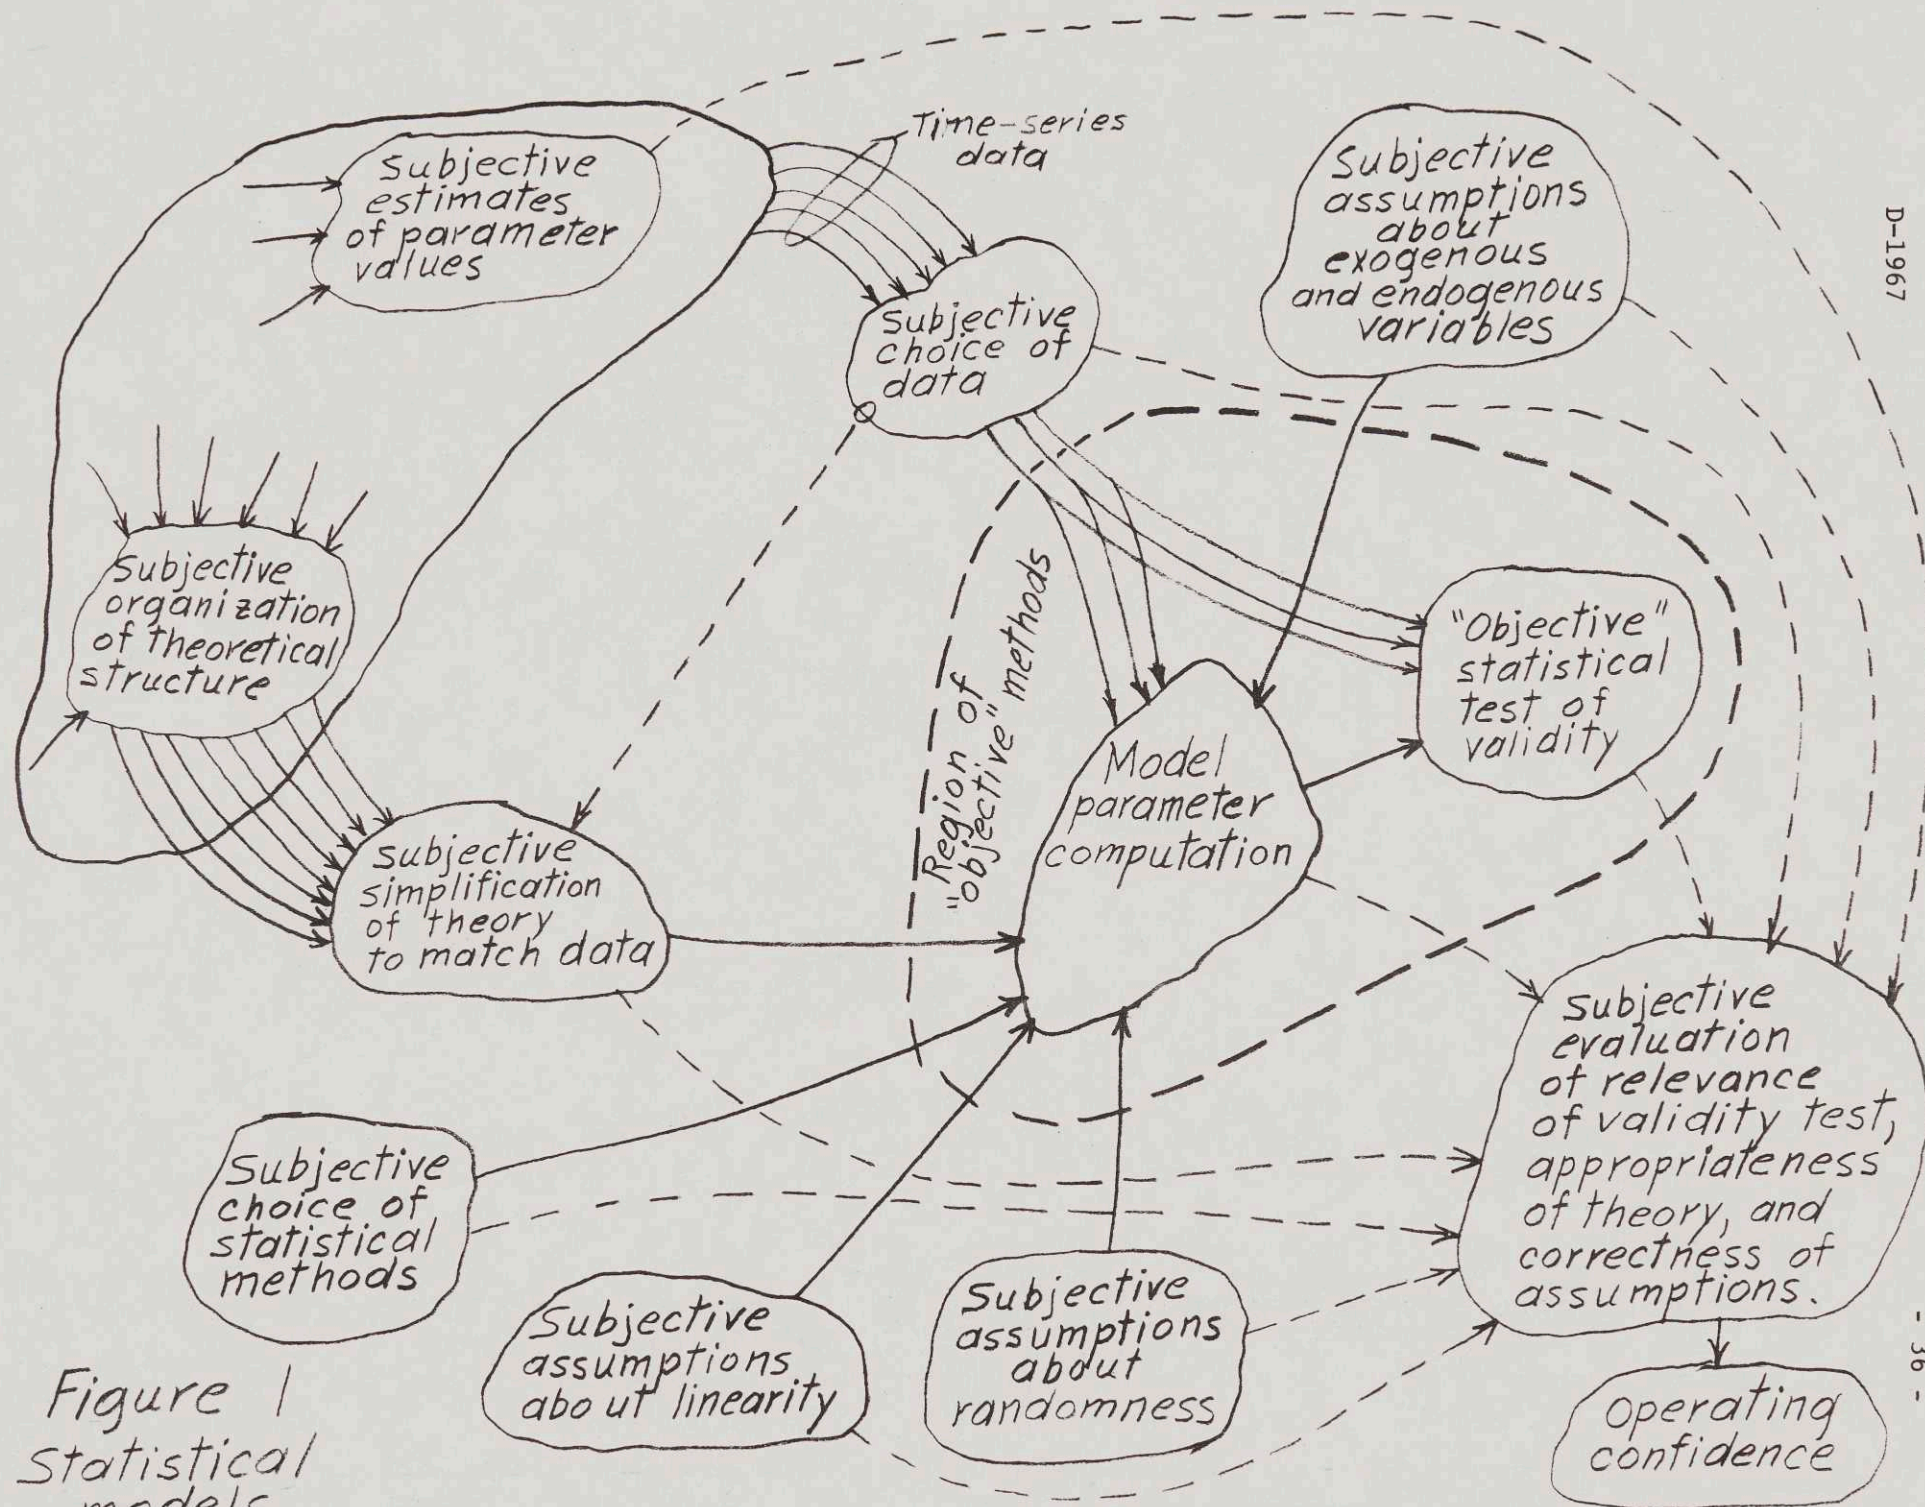 Time-series
data
Subjective
estimates
of parameter
values
Subjective
assumptions
about
exogenous
and endogenous
variables
D-1967
Subjective
choice of
data
Subjective
organization
of theoretical
structure
Region of
"objective" methods
"Objective"
statistical
test of
validity
Model
parameter
computation
Subjective
simplification
of theory
to match data
Subjective
evaluation
of relevance
of validity test,
appropriateness
of theory, and
correctness of
assumptions.
Subjective
choice of
statistical
methods
Subjective
assumptions
about linearity
Subjective
assumptions
about
randomness
- 36 -
Operating
confidence
Figure 1
Statistical
models